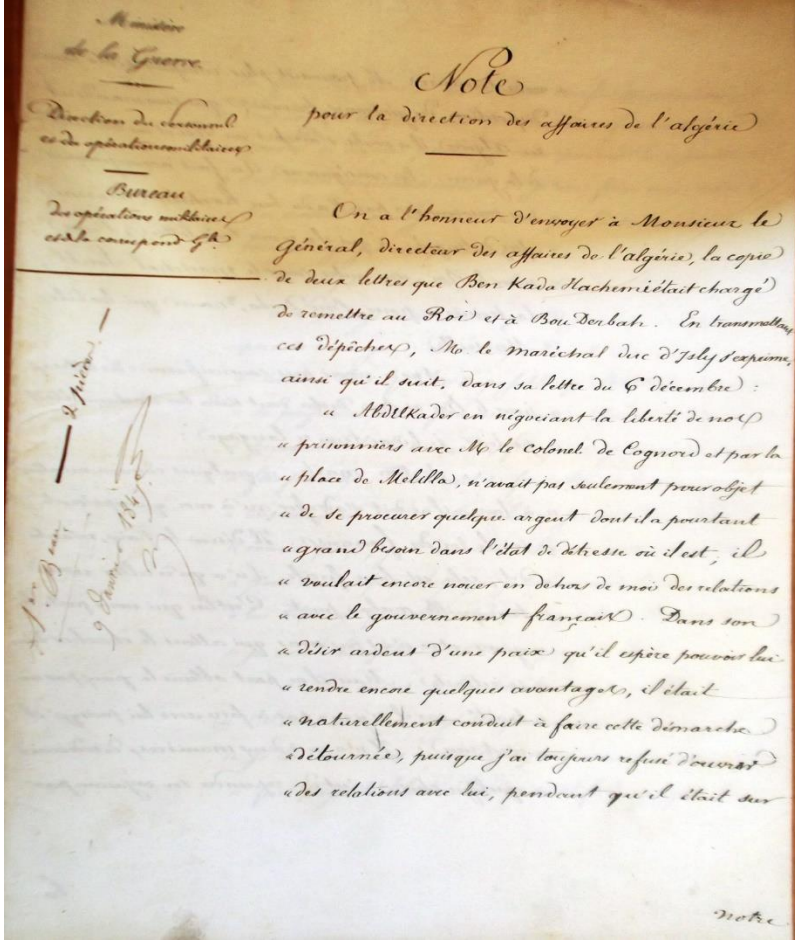 Ministère
de la Guerre.
Direction du personnel
et des opérations militaires
Bureau
des opérations militaires
et de la correspond. Gle
Note
pour la direction des affaires de l'algérie
On a l'honneur d'envoyer à Monsieur le
Général, directeur des affaires de l'algérie, la copie
de deux lettres que Ben Kada Hachemi était chargé
de remettre au Roi et à Bou Derbah. En transmettant
ces dépêches, M. le maréchal duc d'Isly s'exprime,
ainsi qu'il suit, dans sa lettre du 6 décembre :
" AbdElKader en négociant la liberté de nos
" prisonniers avec M. le colonel de Cognord et par la
" place de Melilla, n'avait pas seulement pour objet
" de se procurer quelque argent dont il a pourtant
" grand besoin dans l'état de détresse où il est, il
" voulait encore nouer en dehors de moi des relations
" avec le gouvernement français. Dans son
" désir ardent d'une paix qu'il espère pouvoir lui
" rendre encore quelques avantages, il était
" naturellement conduit à faire cette démarche
" détournée, puisque j'ai toujours refusé d'ouvrir
" des relations avec lui, pendant qu'il était sur
notre
2 pièces
1er Beau
9 Janvier 1847